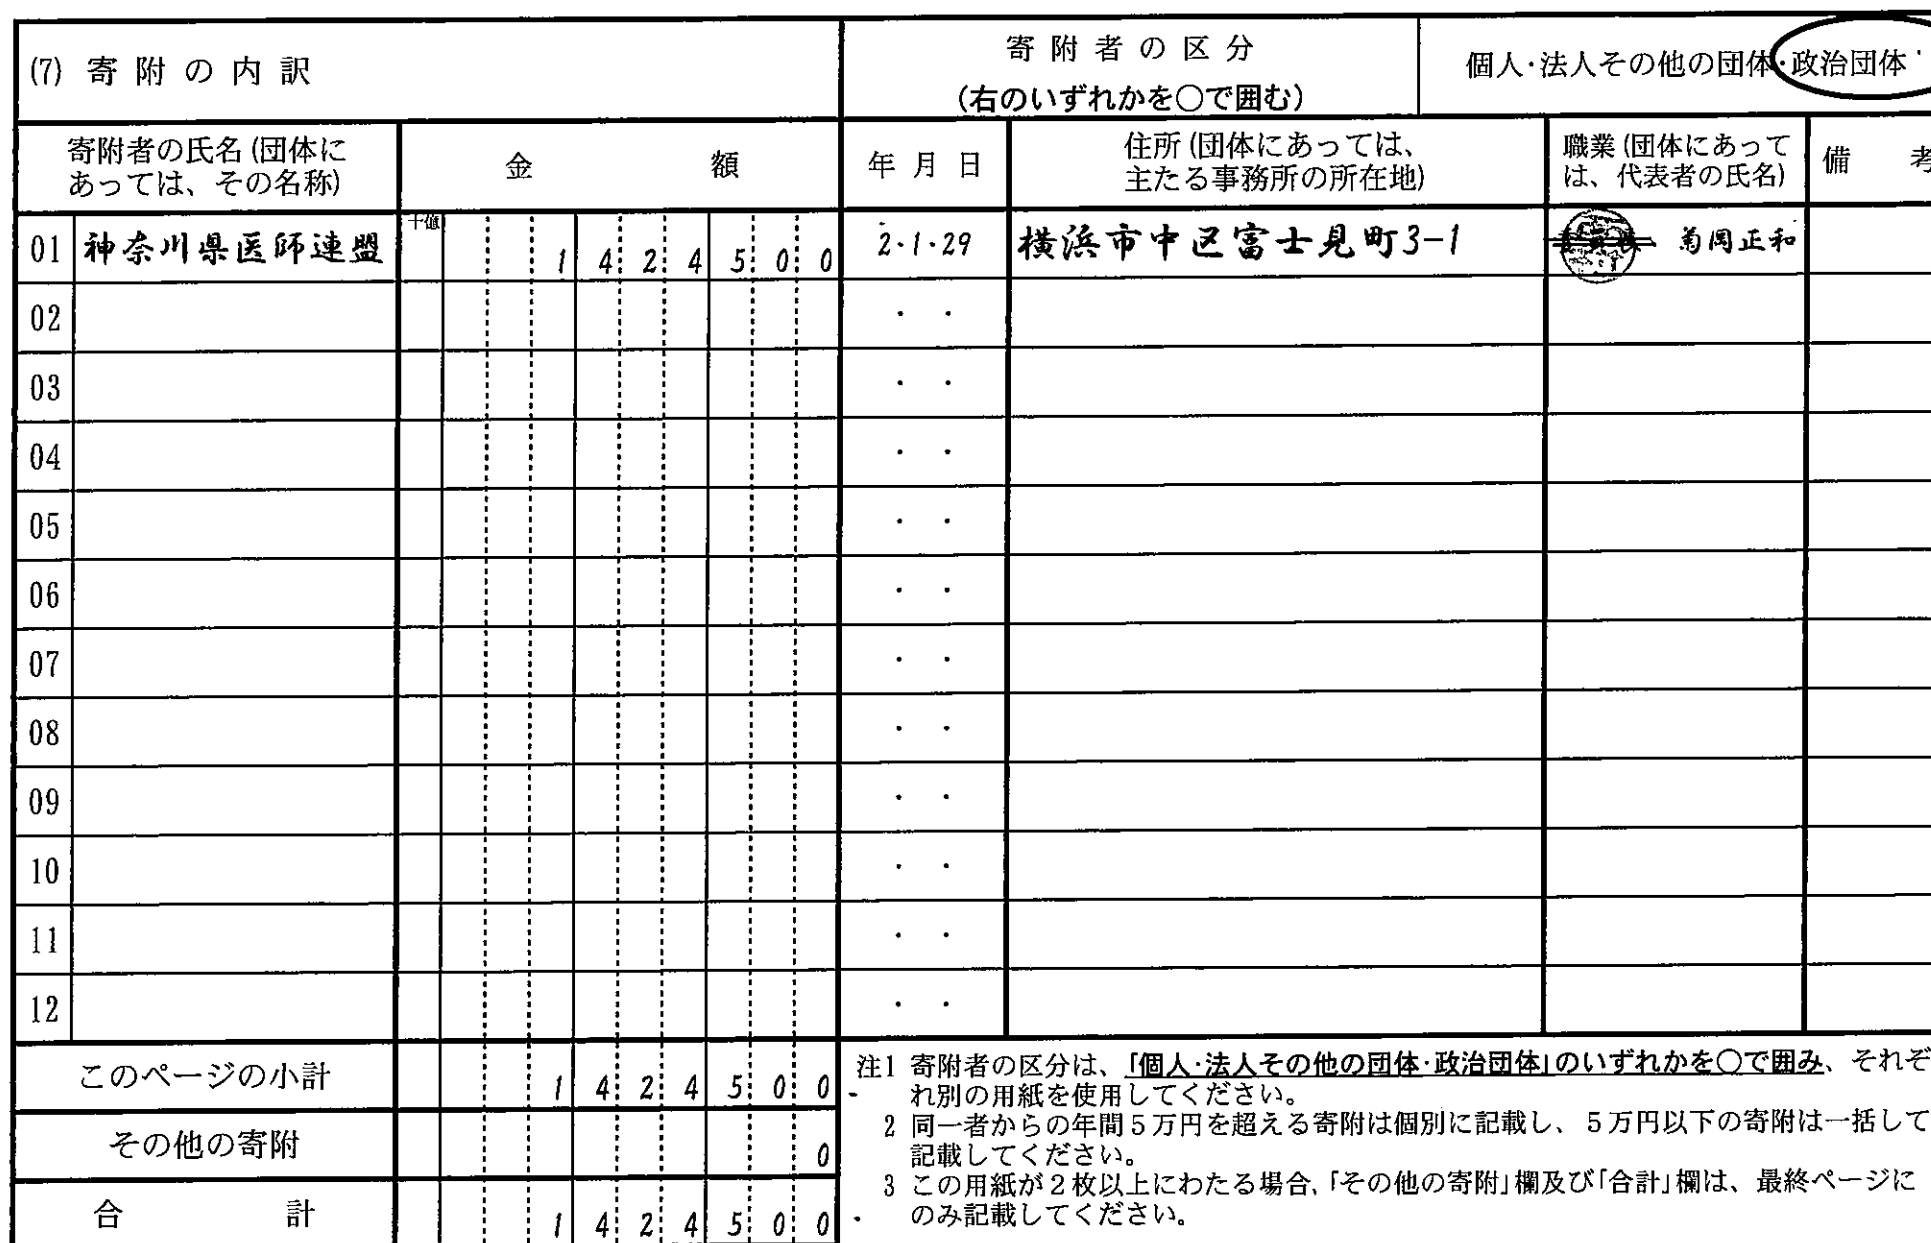 (7) 寄附の内訳
寄附者の区分
(右のいずれかを○で囲む)
個人・法人その他の団体・政治団体
寄附者の氏名(団体に
あっては、その名称)
金 額
年月日
住所(団体にあっては、
主たる事務所の所在地)
職業(団体にあって
は、代表者の氏名)
備 考
十億
01 神奈川県医師連盟 1424500 2・1・29 横浜市中区富士見町3-1 菊岡正和
02 ・ ・
03 ・ ・
04 ・ ・
05 ・ ・
06 ・ ・
07 ・ ・
08 ・ ・
09 ・ ・
10 ・ ・
11 ・ ・
12 ・ ・
このページの小計 1424500
その他の寄附 0
合 計 1424500
注1 寄附者の区分は、「個人・法人その他の団体・政治団体」のいずれかを○で囲み、それぞ
れ別の用紙を使用してください。
2 同一者からの年間5万円を超える寄附は個別に記載し、5万円以下の寄附は一括して
記載してください。
3 この用紙が2枚以上にわたる場合、「その他の寄附」欄及び「合計」欄は、最終ページに
のみ記載してください。